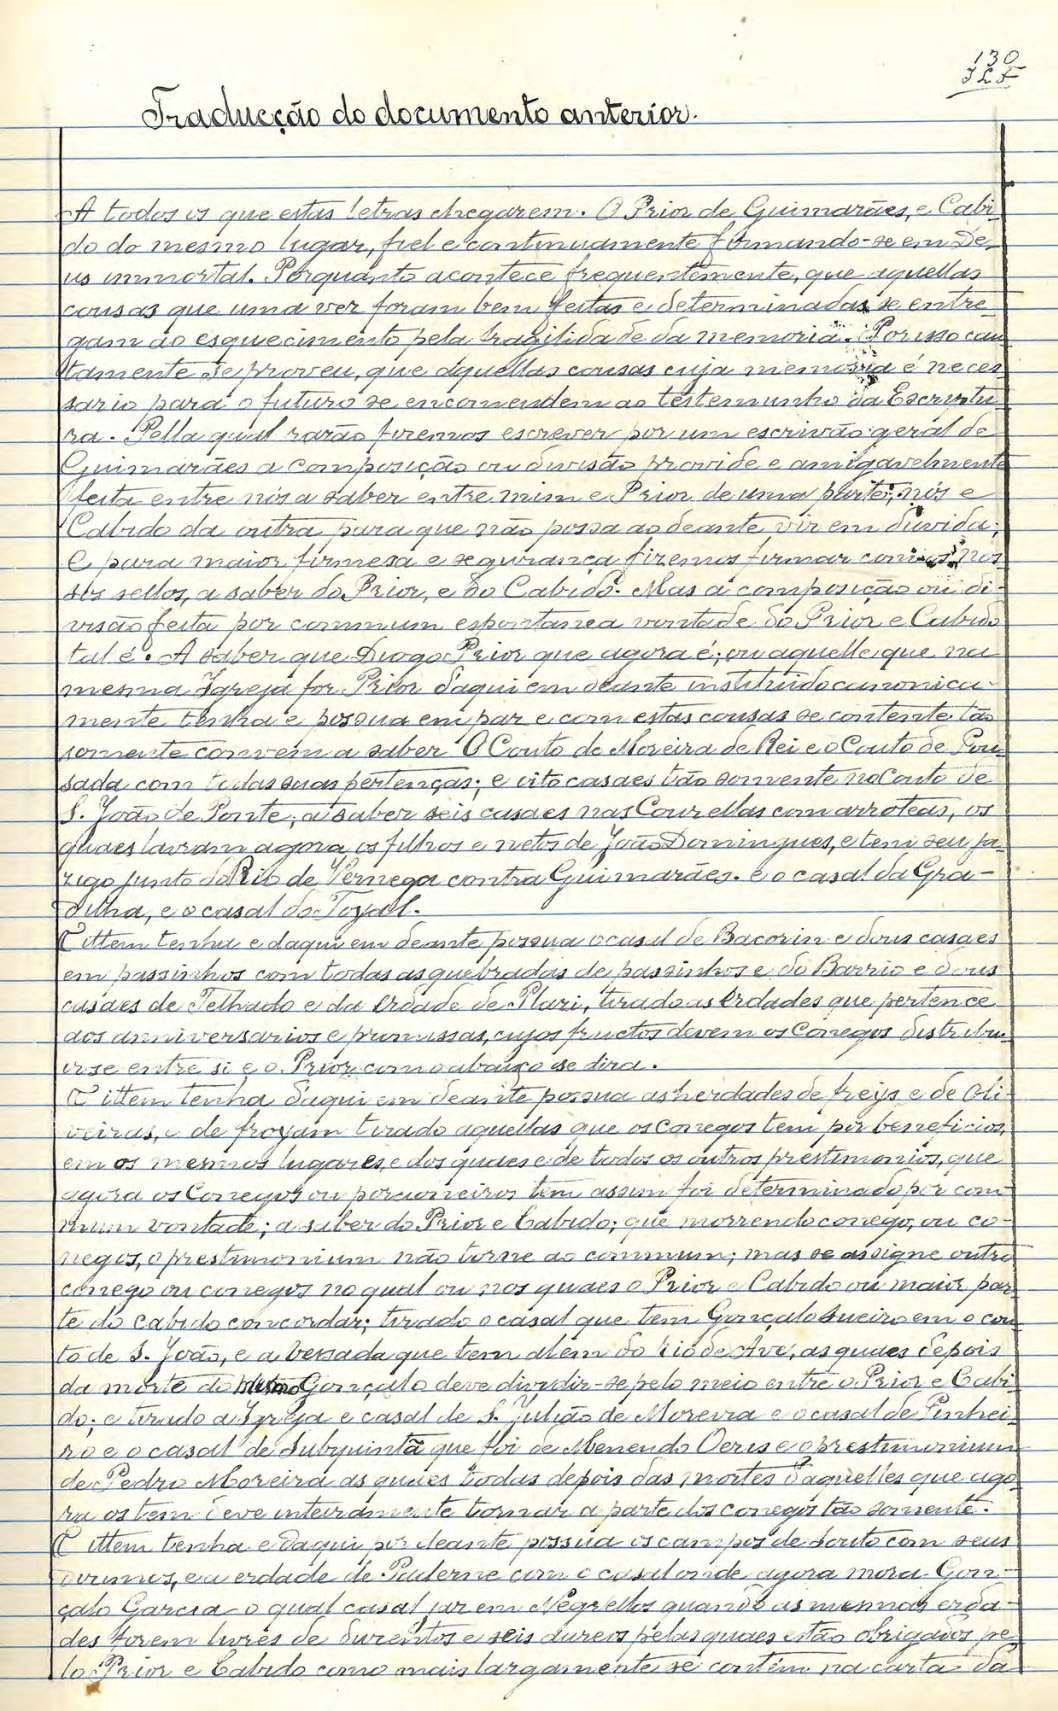 130
Traducção do documento anterior.
A todos os que estas letras chegarem. O Prior de Guimarães, e Cabi-
do do mesmo lugar, fiel e continuamente firmando-se em De-
us immortal. Porquanto acontece frequentemente, que aquellas
cousas que uma vez foram bem feitas e determinadas se entre-
gam ao esquecimento pela fragilidade da memoria. Por isso cau-
tamente se proveu, que aquellas cousas cuja memoria é neces-
sario para o futuro se encomendem ao testemunho da Escriptu-
ra. Pella qual razão fizemos escrever por um escrivão geral de
Guimarães a composição ou divisão provide e amigavelmente
feita entre nós a saber entre mim e Prior de uma parte; nós e
Cabido da outra para que não possa ao deante vir em duvida;
E para maior firmesa e segurança fizemos firmar com os nos-
sos sellos, a saber do Prior, e do Cabido. Mas a composição ou di-
visão feita por commum espontanea vontade do Prior e Cabido
tal é. A saber que Diogo Prior que agora é; ou aquelle que na
mesma Igreja for Prior daqui em deante instituido canonica-
mente tenha e possua em paz e com estas cousas se contente tão
somente convem a saber O Couto de Moreira de Rei e o Couto de Pou-
sada com todas suas pertenças; e oito casaes tão somente no Couto de
S. João de Ponte; a saber seis casaes nas Courellas com arroteas, os
quaes lavram agora os filhos e netos de João Domingues, e tem seu ja-
zigo junto do Rio de Pernega contra Guimarães. e o casal da Gra-
dinha, e o casal do Toyal.
Ittem tenha e daqui em deante possua o casal de Bacorin e dous casaes
em passinhos com todas as quebradas de passinhos e do Barrio e dous
casaes de Telhado e da Erdade de Plari, tirado as Erdades que pertence
aos anniversarios e promissas, cujos fructos devem os Conegos distribu-
ir se entre si e o Prior como abaixo se dira.
Ittem tenha daqui em deante possua as herdades de freijs e de Oli-
veiras, e de froyam tirado aquellas que os Conegos tem por beneficios,
em os mesmos lugares, e dos quaes e de todos os outros prestimonios, que
agora os Conegos ou porcioneiros tem assim foi determinado por com-
mum vontade; a saber do Prior e Cabido; que morrendo conego, ou co-
negos, o prestimonium não torne ao commum; mas se assigne outro
conego ou conegos no qual ou nos quaes o Prior e Cabido ou maior par-
te do cabido concordar; tirado o casal que tem Gonçalo Sueiro em o cou-
to de S. João, e a bessada que tem alem do Rio de Ave, as quaes depois
da morte do mesmo Gonçalo deve dividir-se pelo meio entre o Prior e Cabi-
do; e tirado a Igreja e casal de S. Julião de Moreira e o casal de Pinhei-
ro e o casal de Subquintã que foi de Menendo Oeris e o prestimonium
de Pedro Moreira as quaes todas depois das mortes daquelles que ago-
ra os tem deve inteiramente tornar a parte dos conegos tão somente.
Ittem tenha e daqui por deante possua os campos de Souto com seus
dizimos, e a erdade de Paderne com o casal onde agora mora Gon-
çalo Garcia o qual casal jaz em Negrellos quando as mesmas erda-
des forem livres de duzentos e seis aureos pelas quaes estão obrigados pe-
lo Prior e Cabido como mais largamente se contém na carta da